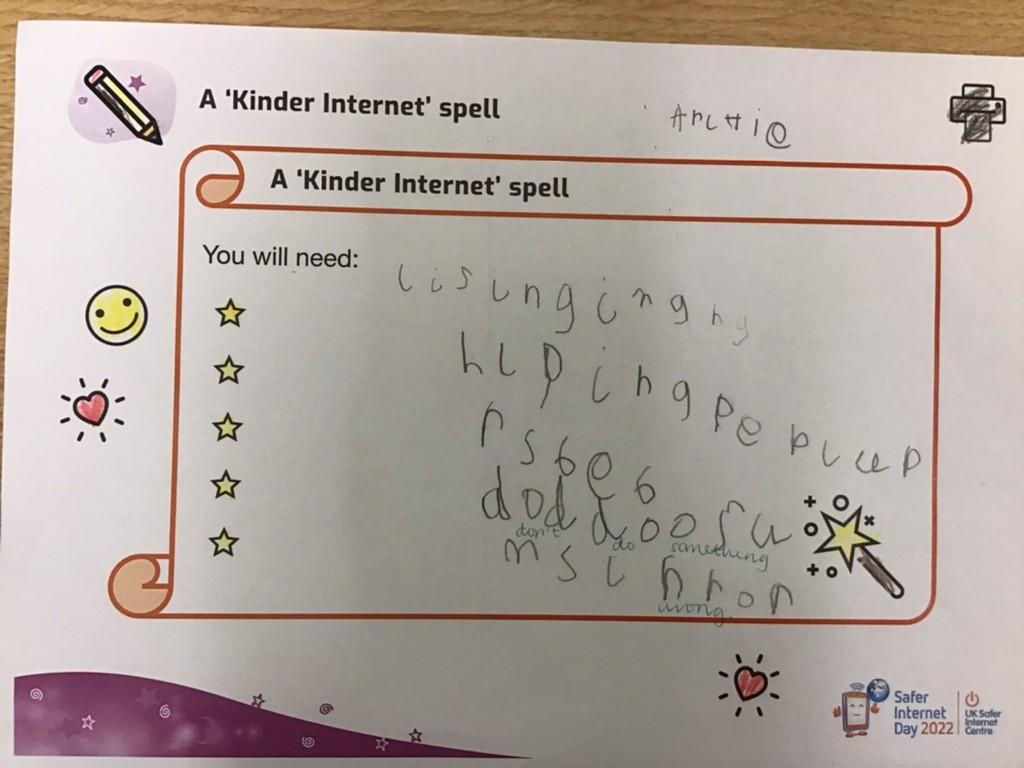 A 'Kinder Internet' spell
Archie
A 'Kinder Internet' spell
You will need:
lisinginghg
hlpingpepluep
rsbeb
dod doosu
don't do something
msl hron
wrong
Safer
Internet
Day 2022
UK Safer
Internet
Centre